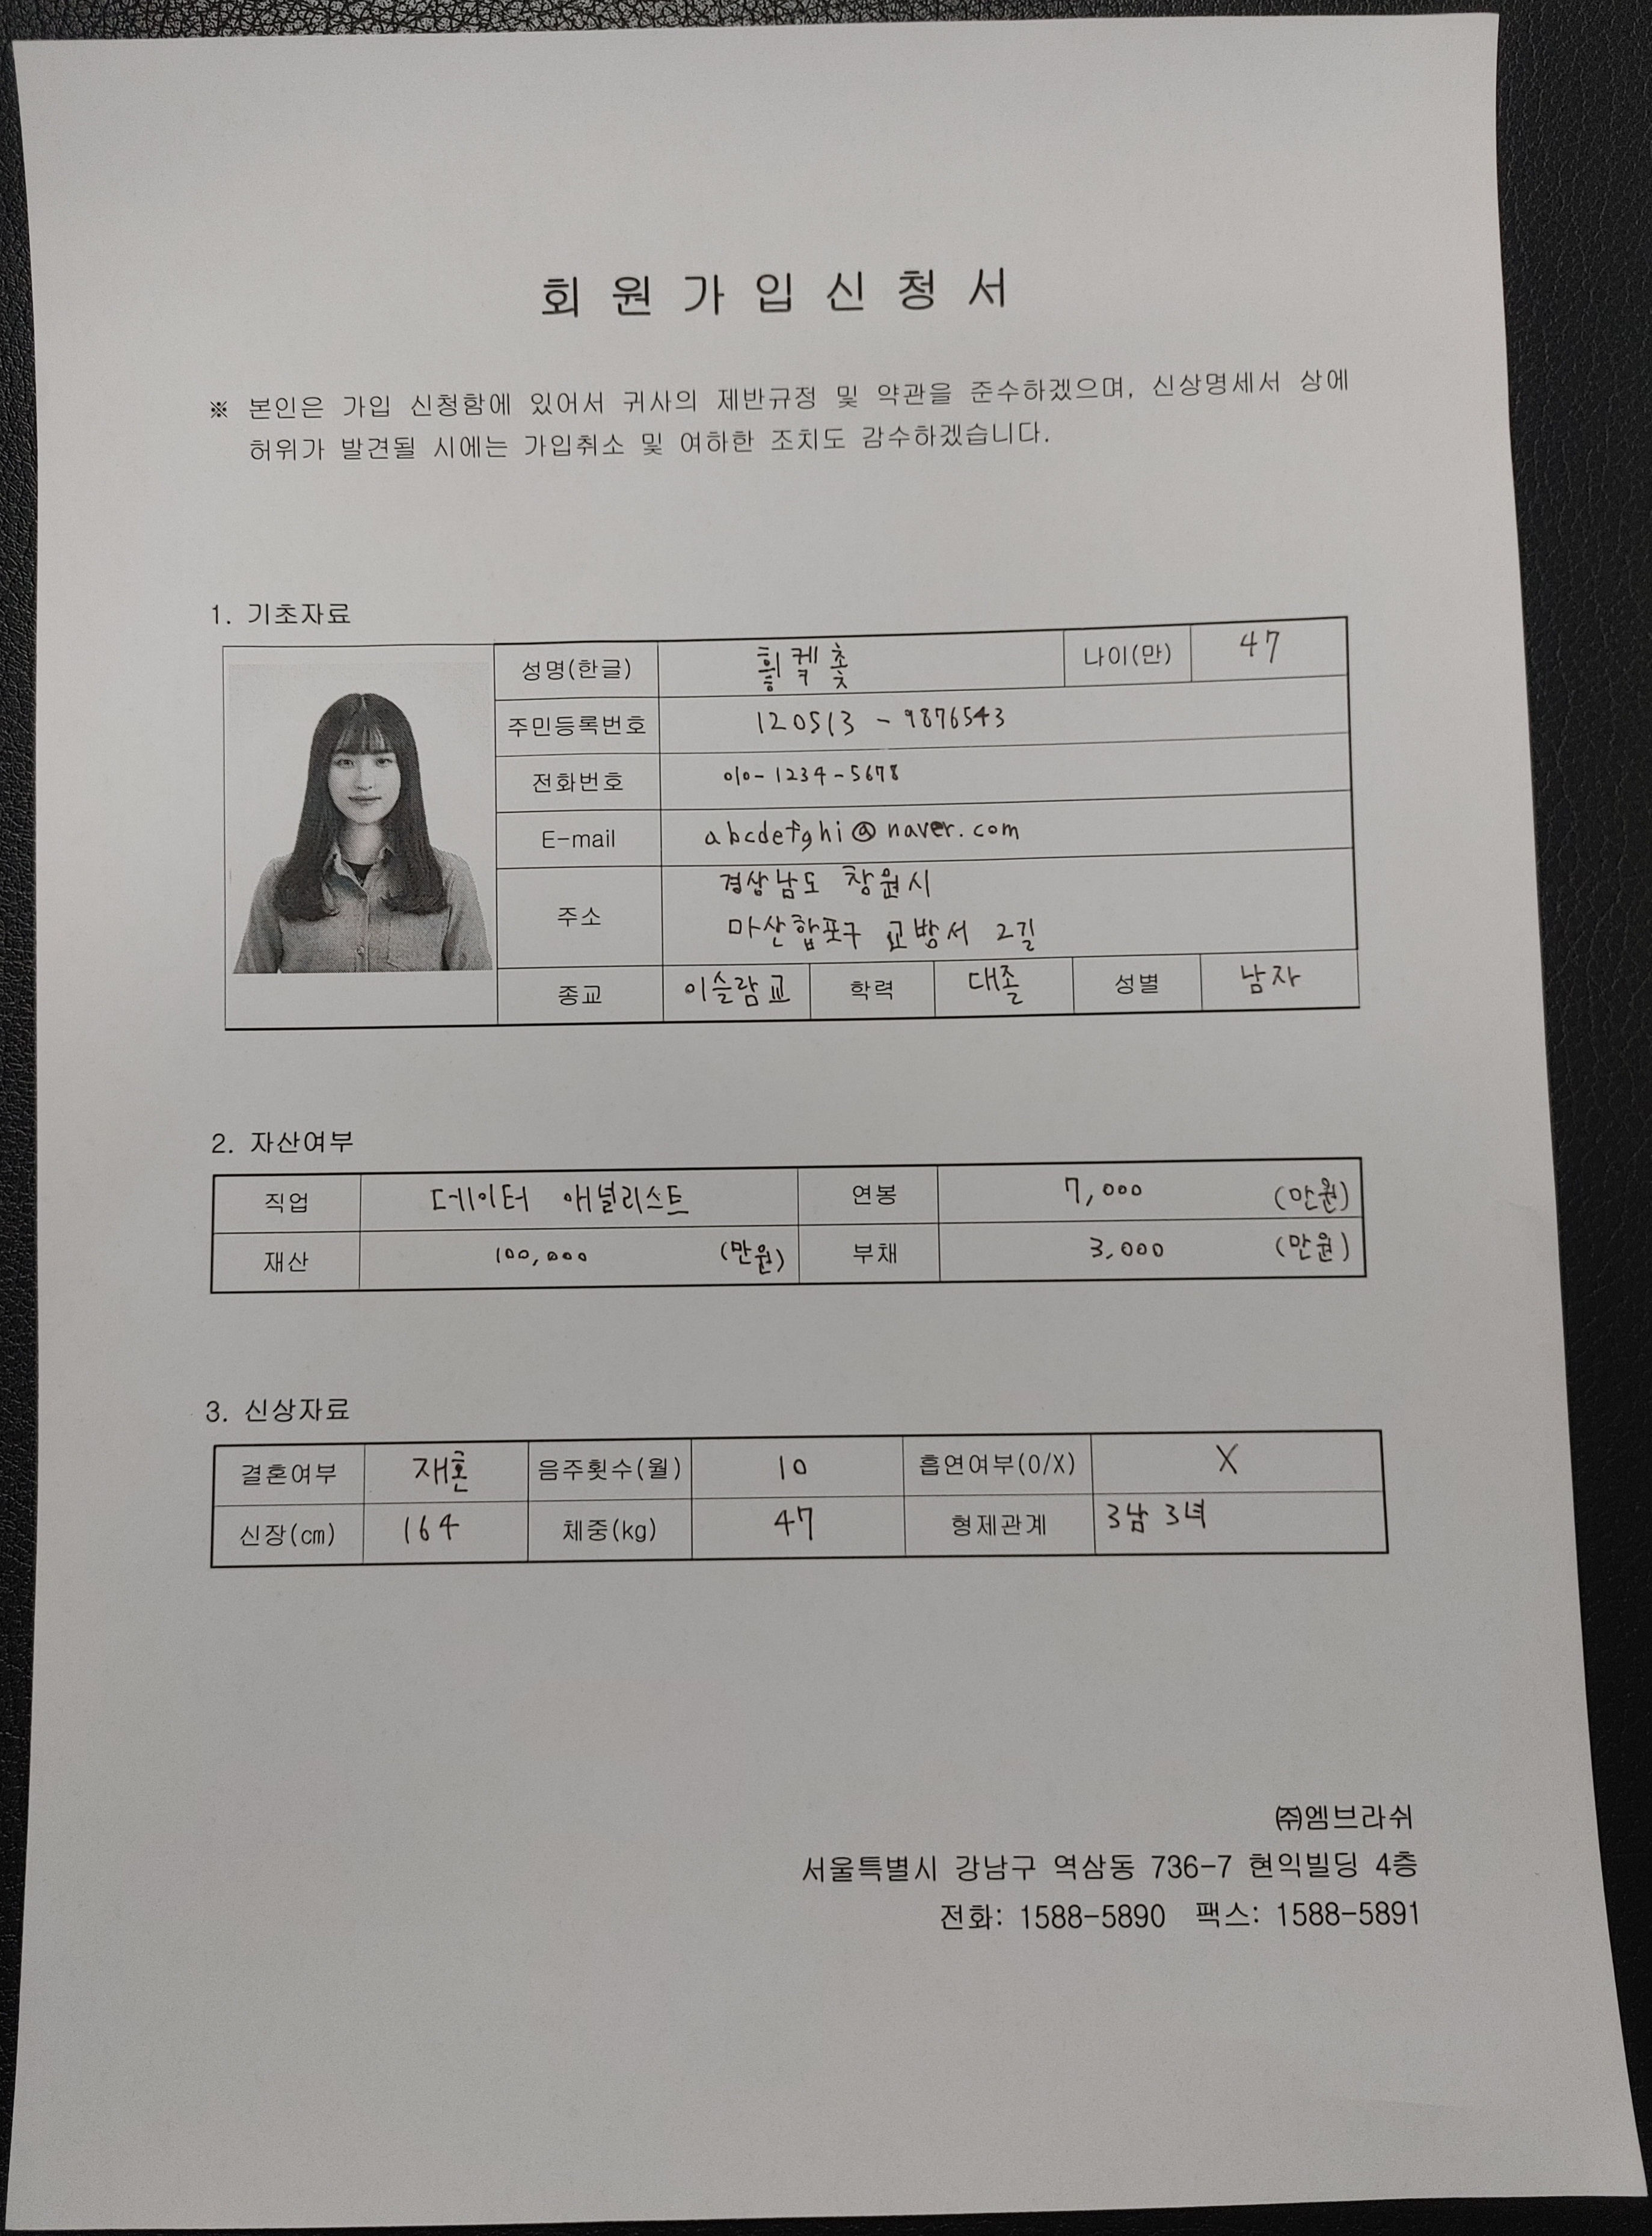 회 원 가 입 신 청 서
※ 본인은 가입 신청함에 있어서 귀사의 제반규정 및 약관을 준수하겠으며, 신상명세서 상에
허위가 발견될 시에는 가입취소 및 여하한 조치도 감수하겠습니다.
1. 기초자료
성명(한글) 나이(만) 47
주민등록번호 120513 - 9876543
전화번호 010-1234-5678
E-mail abcdefghi@naver.com
주소 경상남도 창원시
마산합포구 교방서 2길
종교 이슬람교 학력 대졸 성별 남자
2. 자산여부
직업 데이터 애널리스트 연봉 7,000 (만원)
재산 100,000 (만원) 부채 3,000 (만원)
3. 신상자료
결혼여부 재혼 음주횟수(월) 10 흡연여부(O/X) X
신장(㎝) 164 체중(kg) 47 형제관계 3남 3녀
㈜엠브라쉬
서울특별시 강남구 역삼동 736-7 현익빌딩 4층
전화: 1588-5890 팩스: 1588-5891